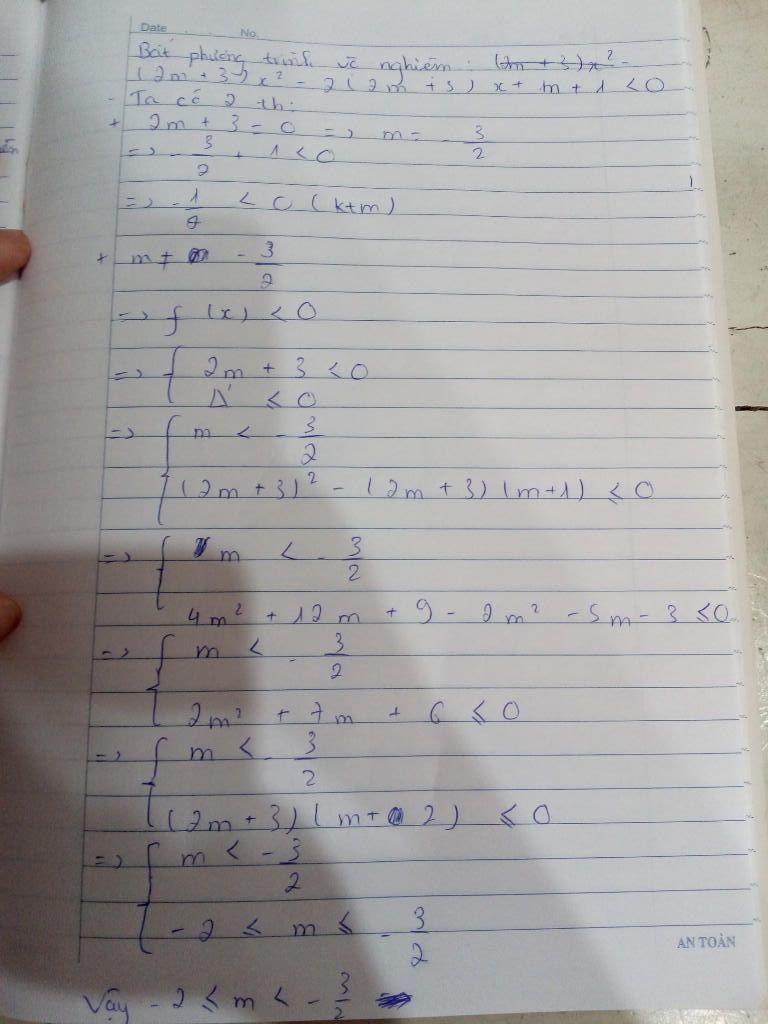 Date No.
Bất phương trình vô nghiệm : (2m + 3)x² -
(2m + 3)x² - 2(2m + 3) x + m + 1 < 0
- Ta có 2 th:
+ 2m + 3 = 0 => m = - 3/2
=> - 3/2 + 1 < 0
=> - 1/2 < 0 (ktm)
+ m ≠ - 3/2
=> f(x) < 0
=> { 2m + 3 < 0
Δ' ≤ 0
=> { m < - 3/2
(2m + 3)² - (2m + 3)(m+1) ≤ 0
=> { m < - 3/2
4m² + 12m + 9 - 2m² - 5m - 3 ≤ 0
=> { m < - 3/2
2m² + 7m + 6 ≤ 0
=> { m < - 3/2
(2m + 3)(m + 2) ≤ 0
=> { m < - 3/2
- 2 ≤ m ≤ - 3/2
AN TOÀN
Vậy - 2 ≤ m < - 3/2